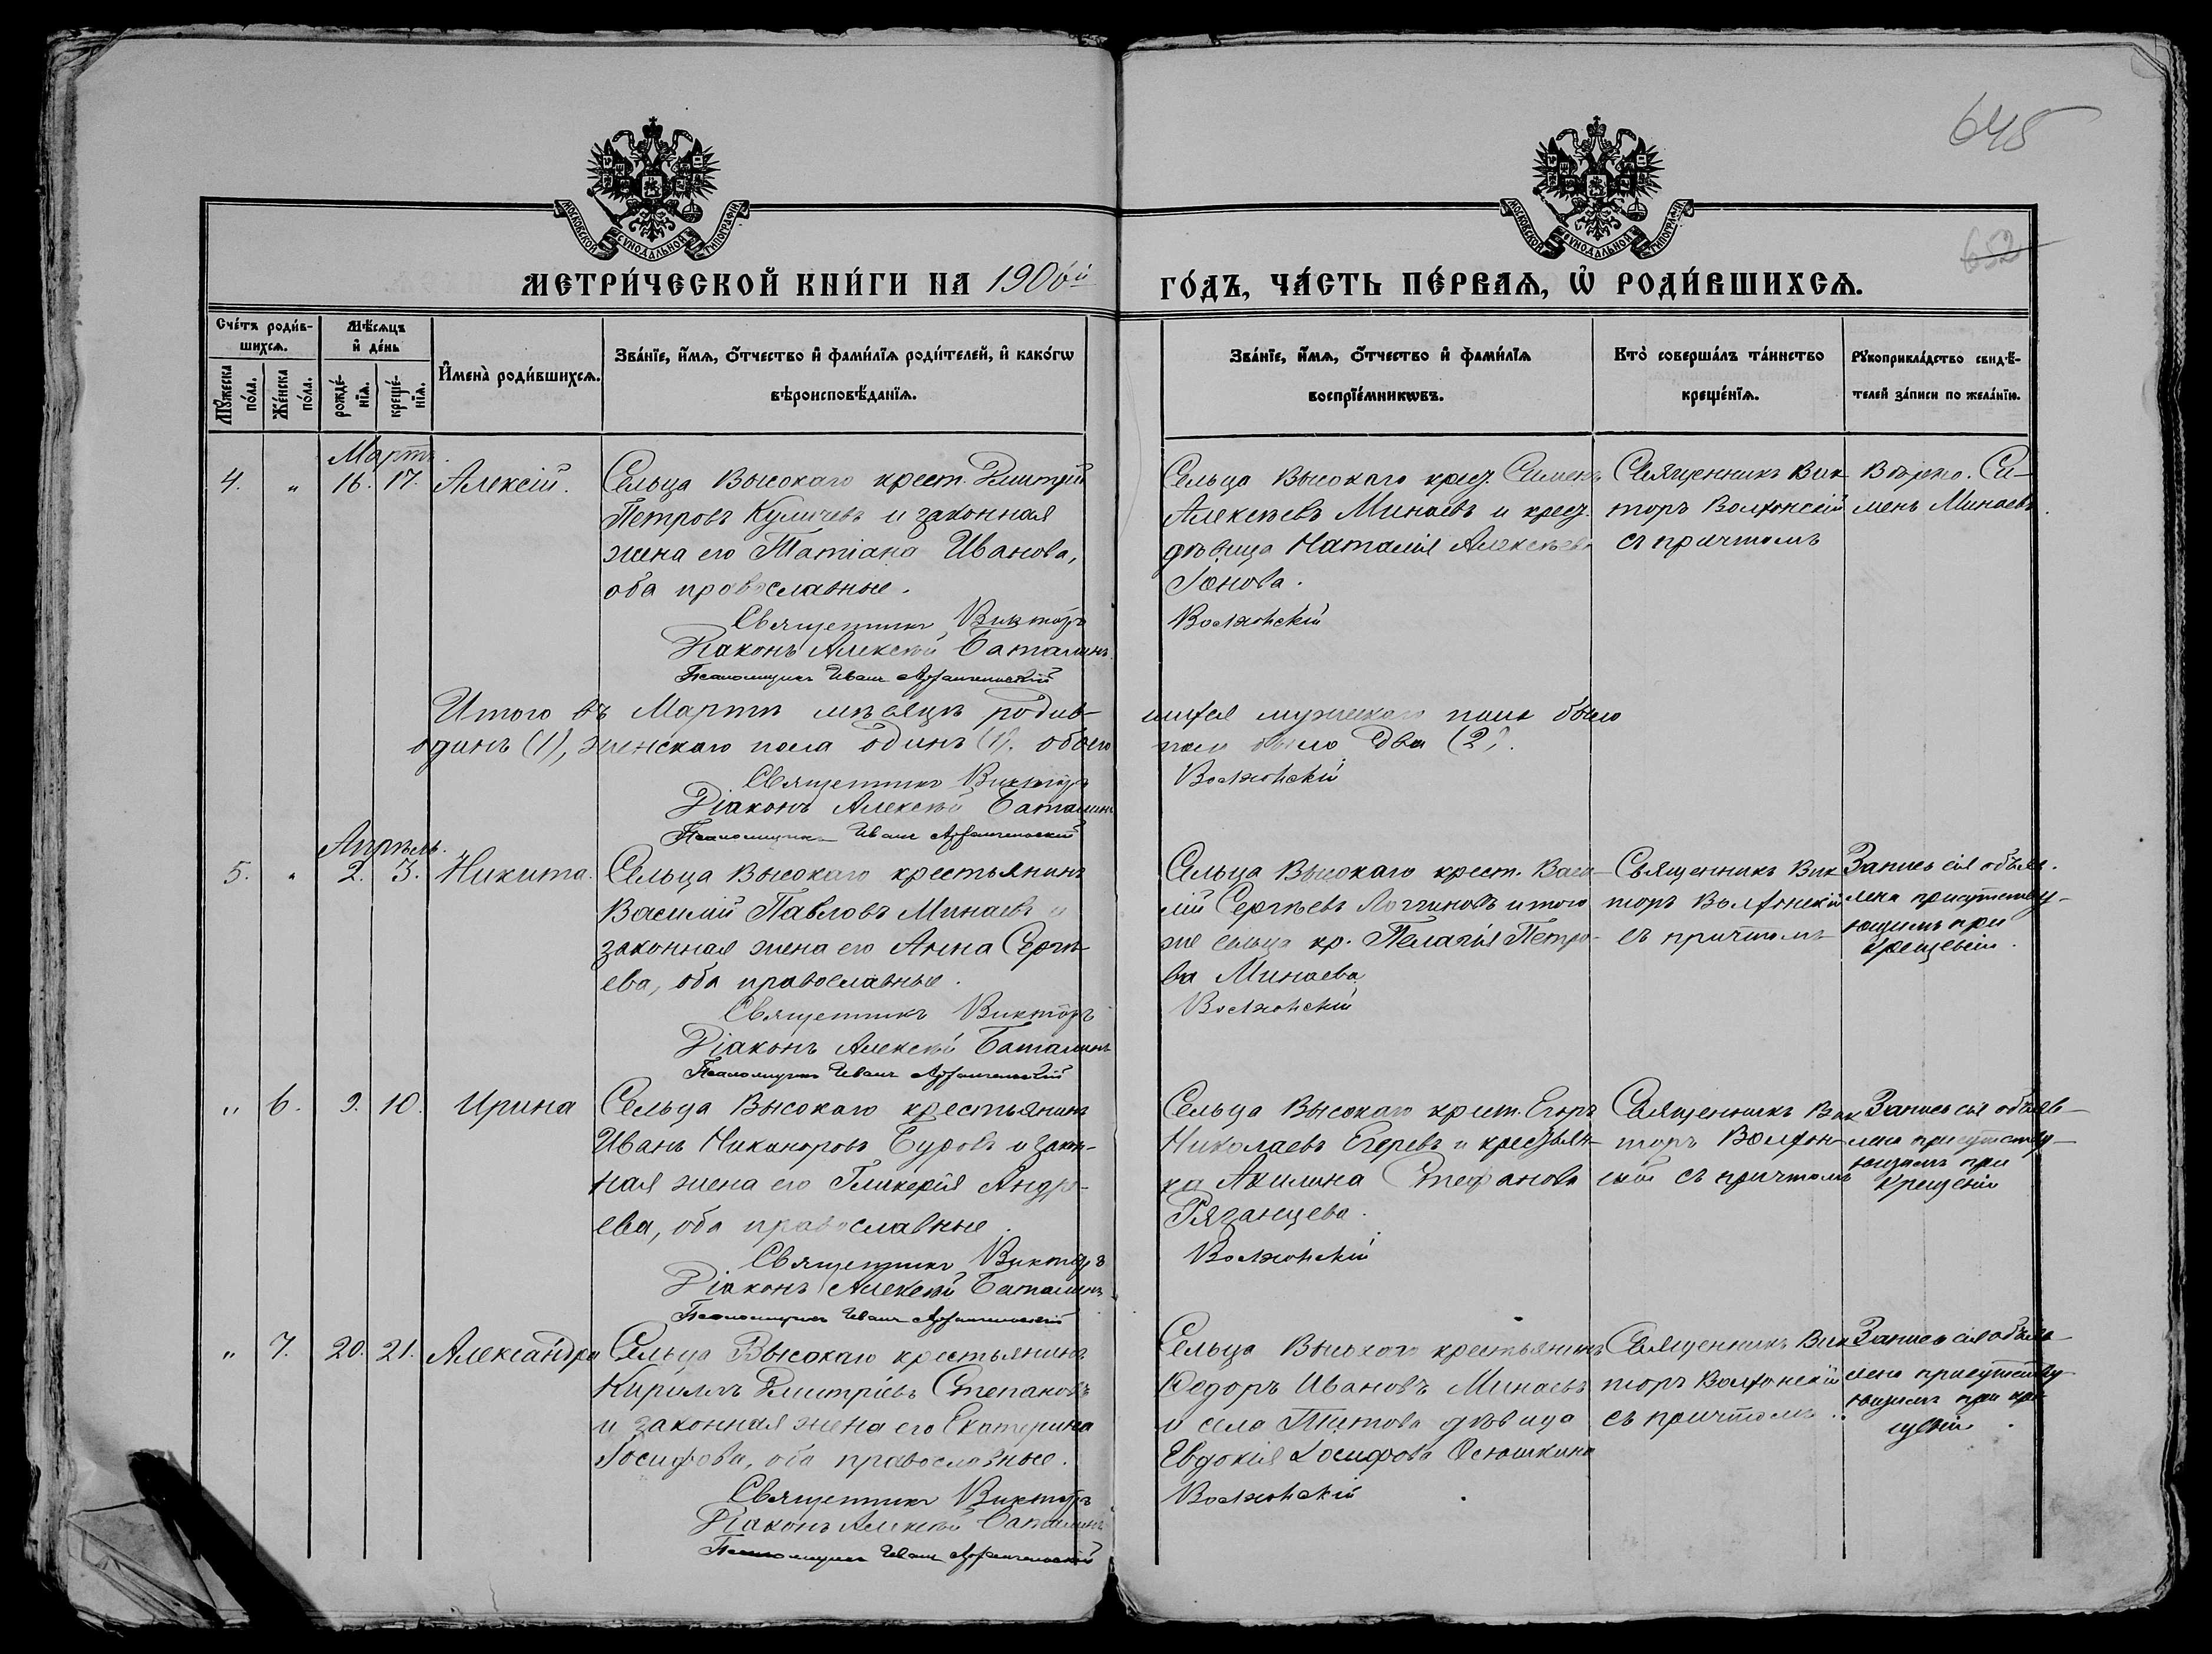 645
652
МОСКОВСКОЙ СУНОДАЛЬНОЙ ТИПОГРАФІИ
МОСКОВСКОЙ СУНОДАЛЬНОЙ ТИПОГРАФІИ
МЕТРИ́ЧЕСКОЙ КНИ́ГИ НА 1906й
ГО́ДЪ, ЧА́СТЬ ПЕ́РВАѦ, Ѡ҆ РОДИ́ВШИХСѦ.
Сче́тъ роди́в-
шихсѧ.
Мѣ́сѧцъ
и҆ де́нь
Мꙋ́жеска
по́ла.
Же́нска
по́ла.
рожде́-
нїѧ.
креще́-
нїѧ.
И҆мена̀ роди́вшихсѧ.
Зва́нїе, и҆́мѧ, ѻ҆́тчество и҆ фами́лїѧ роди́телей, и҆ како́гѡ
вѣроисповѣ́данїѧ.
Зва́нїе, и҆́мѧ, ѻ҆́тчество и҆ фами́лїѧ
воспрїе́мникѡвъ.
Кто̀ соверша́лъ та́инство
креще́нїѧ.
Рꙋкоприкла́дство свидѣ́-
телей за́писи по жела́нїю.
Мартъ.
4. " 16. 17. Алексій. Сельца Высокаго крест. Дмитрій
Петровъ Куличевъ и законная
жена его Татіана Иванова,
оба православные.
Священникъ Викторъ
Діаконъ Алексѣй Баталинъ
Псаломщикъ Иванъ Архангельскій
Сельца Высокаго крест. Симеонъ
Алексѣевъ Минаевъ и крест.
дѣвица Наталія Алексѣева
Іонова.
Волхонскій
Священникъ Вик-
торъ Волхонскій
съ причтомъ
Вѣрно. Си-
менъ Минаевъ.
Итого въ Мартѣ мѣсяцѣ родив-
шихся мужескаго пола было
одинъ (1), женскаго пола одинъ (1). обоего
пола было два (2).
Священникъ Викторъ
Волхонскій
Діаконъ Алексѣй Баталинъ
Псаломщикъ Иванъ Архангельскій
Апрѣль.
5. " 2. 3. Никита. Сельца Высокаго крестьянинъ
Василій Павловъ Минаевъ и
законная жена его Анна Сергѣ-
ева, оба православные.
Священникъ Викторъ
Діаконъ Алексѣй Баталинъ
Псаломщикъ Иванъ Архангельскій
Сельца Высокаго крест. Васи-
лій Сергѣевъ Логгиновъ и того
же сельца кр. Пелагія Петро-
ва Минаева
Волхонскій
Священникъ Вик
торъ Волхонскій
съ причтомъ
Запись сія объяв-
лена присутству-
ющимъ при
крещеніи.
" 6. 9. 10. Ирина Сельца Высокаго крестьянинъ
Иванъ Никаноровъ Буровъ и закон-
ная жена его Гликерія Андре-
ева, оба православные.
Священникъ Викторъ
Діаконъ Алексѣй Баталинъ
Псаломщикъ Иванъ Архангельскій
Сельца Высокаго крест. Егоръ
Николаевъ Егеревъ и крестьян-
ка Акилина Стефанова
Рязанцева.
Волхонскій
Священникъ Вик
торъ Волхон-
скій съ причтомъ
Запись сія объяв-
лена присутству-
ющимъ при
крещеніи
" 7. 20. 21. Александра Сельца Высокаго крестьянинъ
Кириллъ Дмитріевъ Степановъ
и законная жена его Екатерина
Іосифова, оба православные.
Священникъ Викторъ
Діаконъ Алексѣй Баталинъ
Псаломщикъ Иванъ Архангельскій
Сельца Высокаго крестьянинъ
Ѳедоръ Ивановъ Минаевъ
и села Титова дѣвица
Евдокія Іосифова Осюшкина
Волхонскій
Священникъ Вик
торъ Волхонскій
съ причтомъ.
Запись сія объяв-
лена присутству
ющимъ при кре-
щеніи.